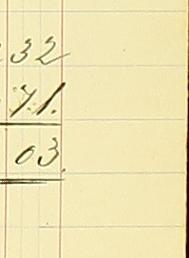 32
71.
03.